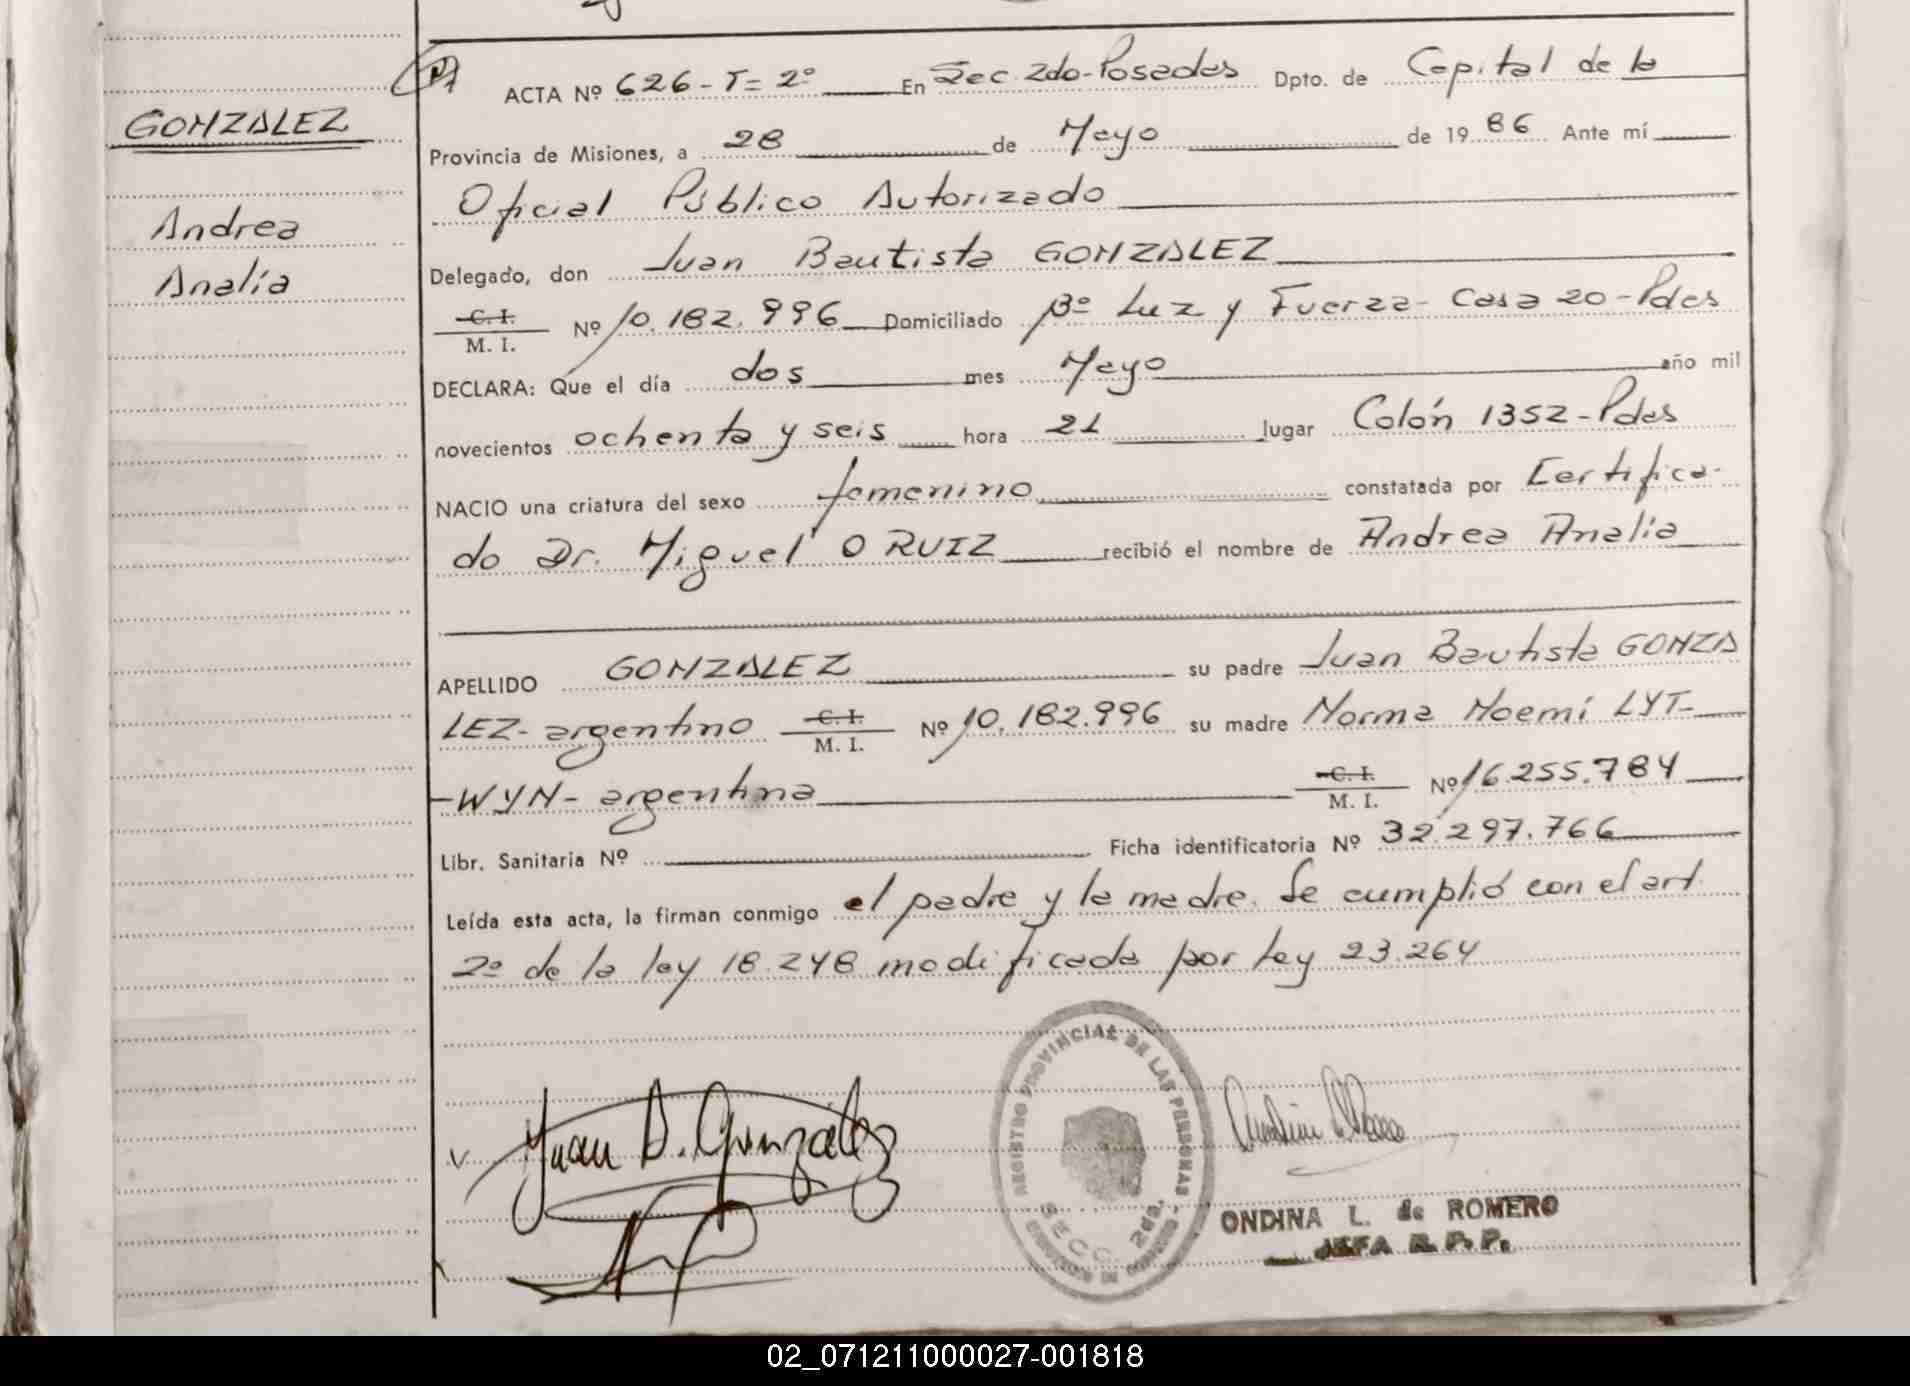 GONZALEZ
Andrea
Analía
ACTA Nº 626-T=2º En Sec. 2do-Posadas Dpto. de Capital de la
Provincia de Misiones, a 28 de Mayo de 1986 Ante mí
Oficial Público Autorizado
Delegado, don Juan Bautista GONZALEZ
C. I. / M. I. Nº 10.182.996 Domiciliado Bº Luz y Fuerza - Casa 20 - Pdas
DECLARA: Que el día dos mes Mayo año mil
novecientos ochenta y seis hora 21 lugar Colón 1352 - Pdas
NACIO una criatura del sexo femenino constatada por Certifica-
do Dr. Miguel O RUIZ recibió el nombre de Andrea Analia
APELLIDO GONZALEZ su padre Juan Bautista GONZA
LEZ - argentino C. I. / M. I. Nº 10.182.996 su madre Norma Noemí LYT-
-WYN - argentina C. I. / M. I. Nº 16.255.784
Libr. Sanitaria Nº Ficha identificatoria Nº 32.297.766
Leída esta acta, la firman conmigo el padre y la madre. Se cumplió con el art.
2º de la ley 18.248 modificada por ley 23.264
Juan B. González
REGISTRO PROVINCIAL DE LAS PERSONAS
SECC. 2da.
ONDINA L. de ROMERO
JEFA R. P. P.
02_071211000027-001818